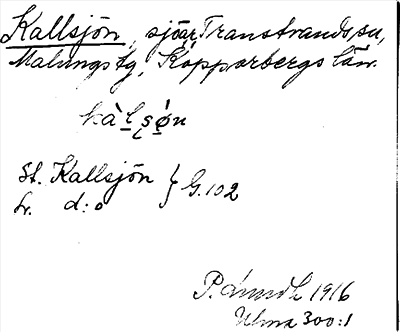 Kallsjön, sjöar, Transtrands sn,
Malungs tg, Kopparbergs län.
kàlsǿn
St. Kallsjön } G. 102
L. d:o
P. Lundh 1916
Ulma 300:1